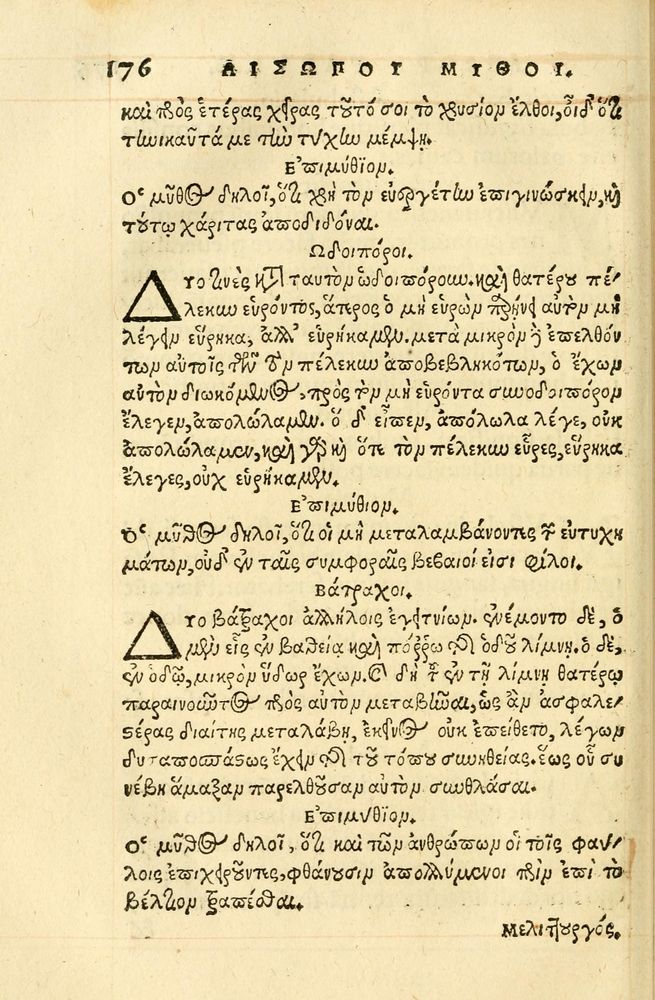 176 ΑΙΣΩΠΟΥ ΜΥΘΟΙ.
καὶ πρὸς ἑτέρας χεῖρας τοῦτό σοι τὸ χρυσίον ἔλθοι, οἶδ' ὅτι
τὴνικαῦτά με τὴν τύχην μέμψῃ.
Ἐπιμύθϊον.
Ὁ μῦθος δηλοῖ, ὅτι χρὴ τὸν εὐεργέτην ἐπιγινώσκειν, καὶ
τούτῳ χάριτας ἀποδιδόναι.
Ὡδοιπόροι.
Δύο τινὲς κατὰ ταυτὸν ὡδοιπόρουν. καὶ θατέρου πέ-
λεκυν εὑρόντος, ἅτερος ὁ μὴ εὑρὼν παρῄνει αὐτὸν μὴ
λέγειν εὕρηκα, ἀλλ' εὑρήκαμεν. μετὰ μικρὸν δὲ ἐπελθόν
των αὐτοῖς τῶν τὸν πέλεκυν ἀποβεβληκότων, ὁ ἔχων
αὐτὸν διωκόμενος, πρὸς τὸν μὴ εὑρόντα συνοδοιπόρον
ἔλεγεν, ἀπολώλαμεν. ὁ δ' εἶπεν, ἀπόλωλα λέγε, οὐκ
ἀπολώλαμεν, καὶ γὰρ καὶ ὅτε τὸν πέλεκυν εὗρες, εὕρηκα
ἔλεγες, οὐχ εὑρήκαμεν.
Ἐπιμύθιον.
Ὁ μῦθος δηλοῖ, ὅτι οἱ μὴ μεταλαμβάνοντες τῶν εὐτυχη
μάτων, οὐδ' ἐν ταῖς συμφοραῖς βέβαιοί εἰσι φίλοι.
Βάτραχοι.
Δύο βάτραχοι ἀλλήλοις ἐγειτνίων. ἐνέμοντο δὲ, ὁ
μὲν εἷς ἐν βαθείᾳ καὶ πόρρω τῆς ὁδοῦ λίμνῃ. ὁ δὲ,
ἐν ὁδῷ, μικρὸν ὕδωρ ἔχων. καὶ δὴ τοῦ ἐν τῇ λίμνῃ θατέρῳ
παραινοῦντος πρὸς αὐτὸν μεταβῆναι, ὡς ἂν ἀσφαλε-
στέρας διαίτης μεταλάβῃ, ἐκεῖνος οὐκ ἐπείθετο, λέγων
δυσαποσπάστως ἔχειν τῆς τοῦ τόπου συνηθείας. ἕως οὗ συ
νέβη ἅμαξαν παρελθοῦσαν αὐτὸν συνθλάσαι.
Ἐπιμύθϊον.
Ὁ μῦθος δηλοῖ, ὅτι καὶ τῶν ἀνθρώπων οἱ τοῖς φαύ-
λοις ἐπιχειροῦντες, φθάνουσιν ἀπολλύμενοι πρὶν ἐπὶ τὸ
βέλτιον τραπέσθαι.
Μελιττουργός.